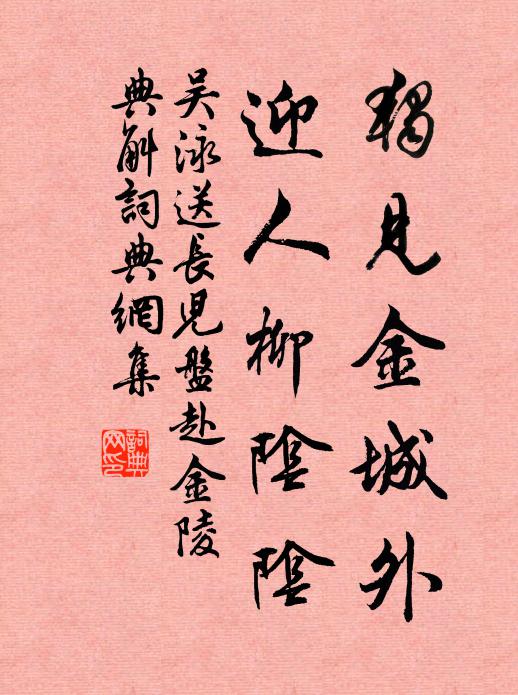 獨見金城外
迎人柳陰陰
吳泳送長兒盤赴金陵
典解詞典網集
詞典網印